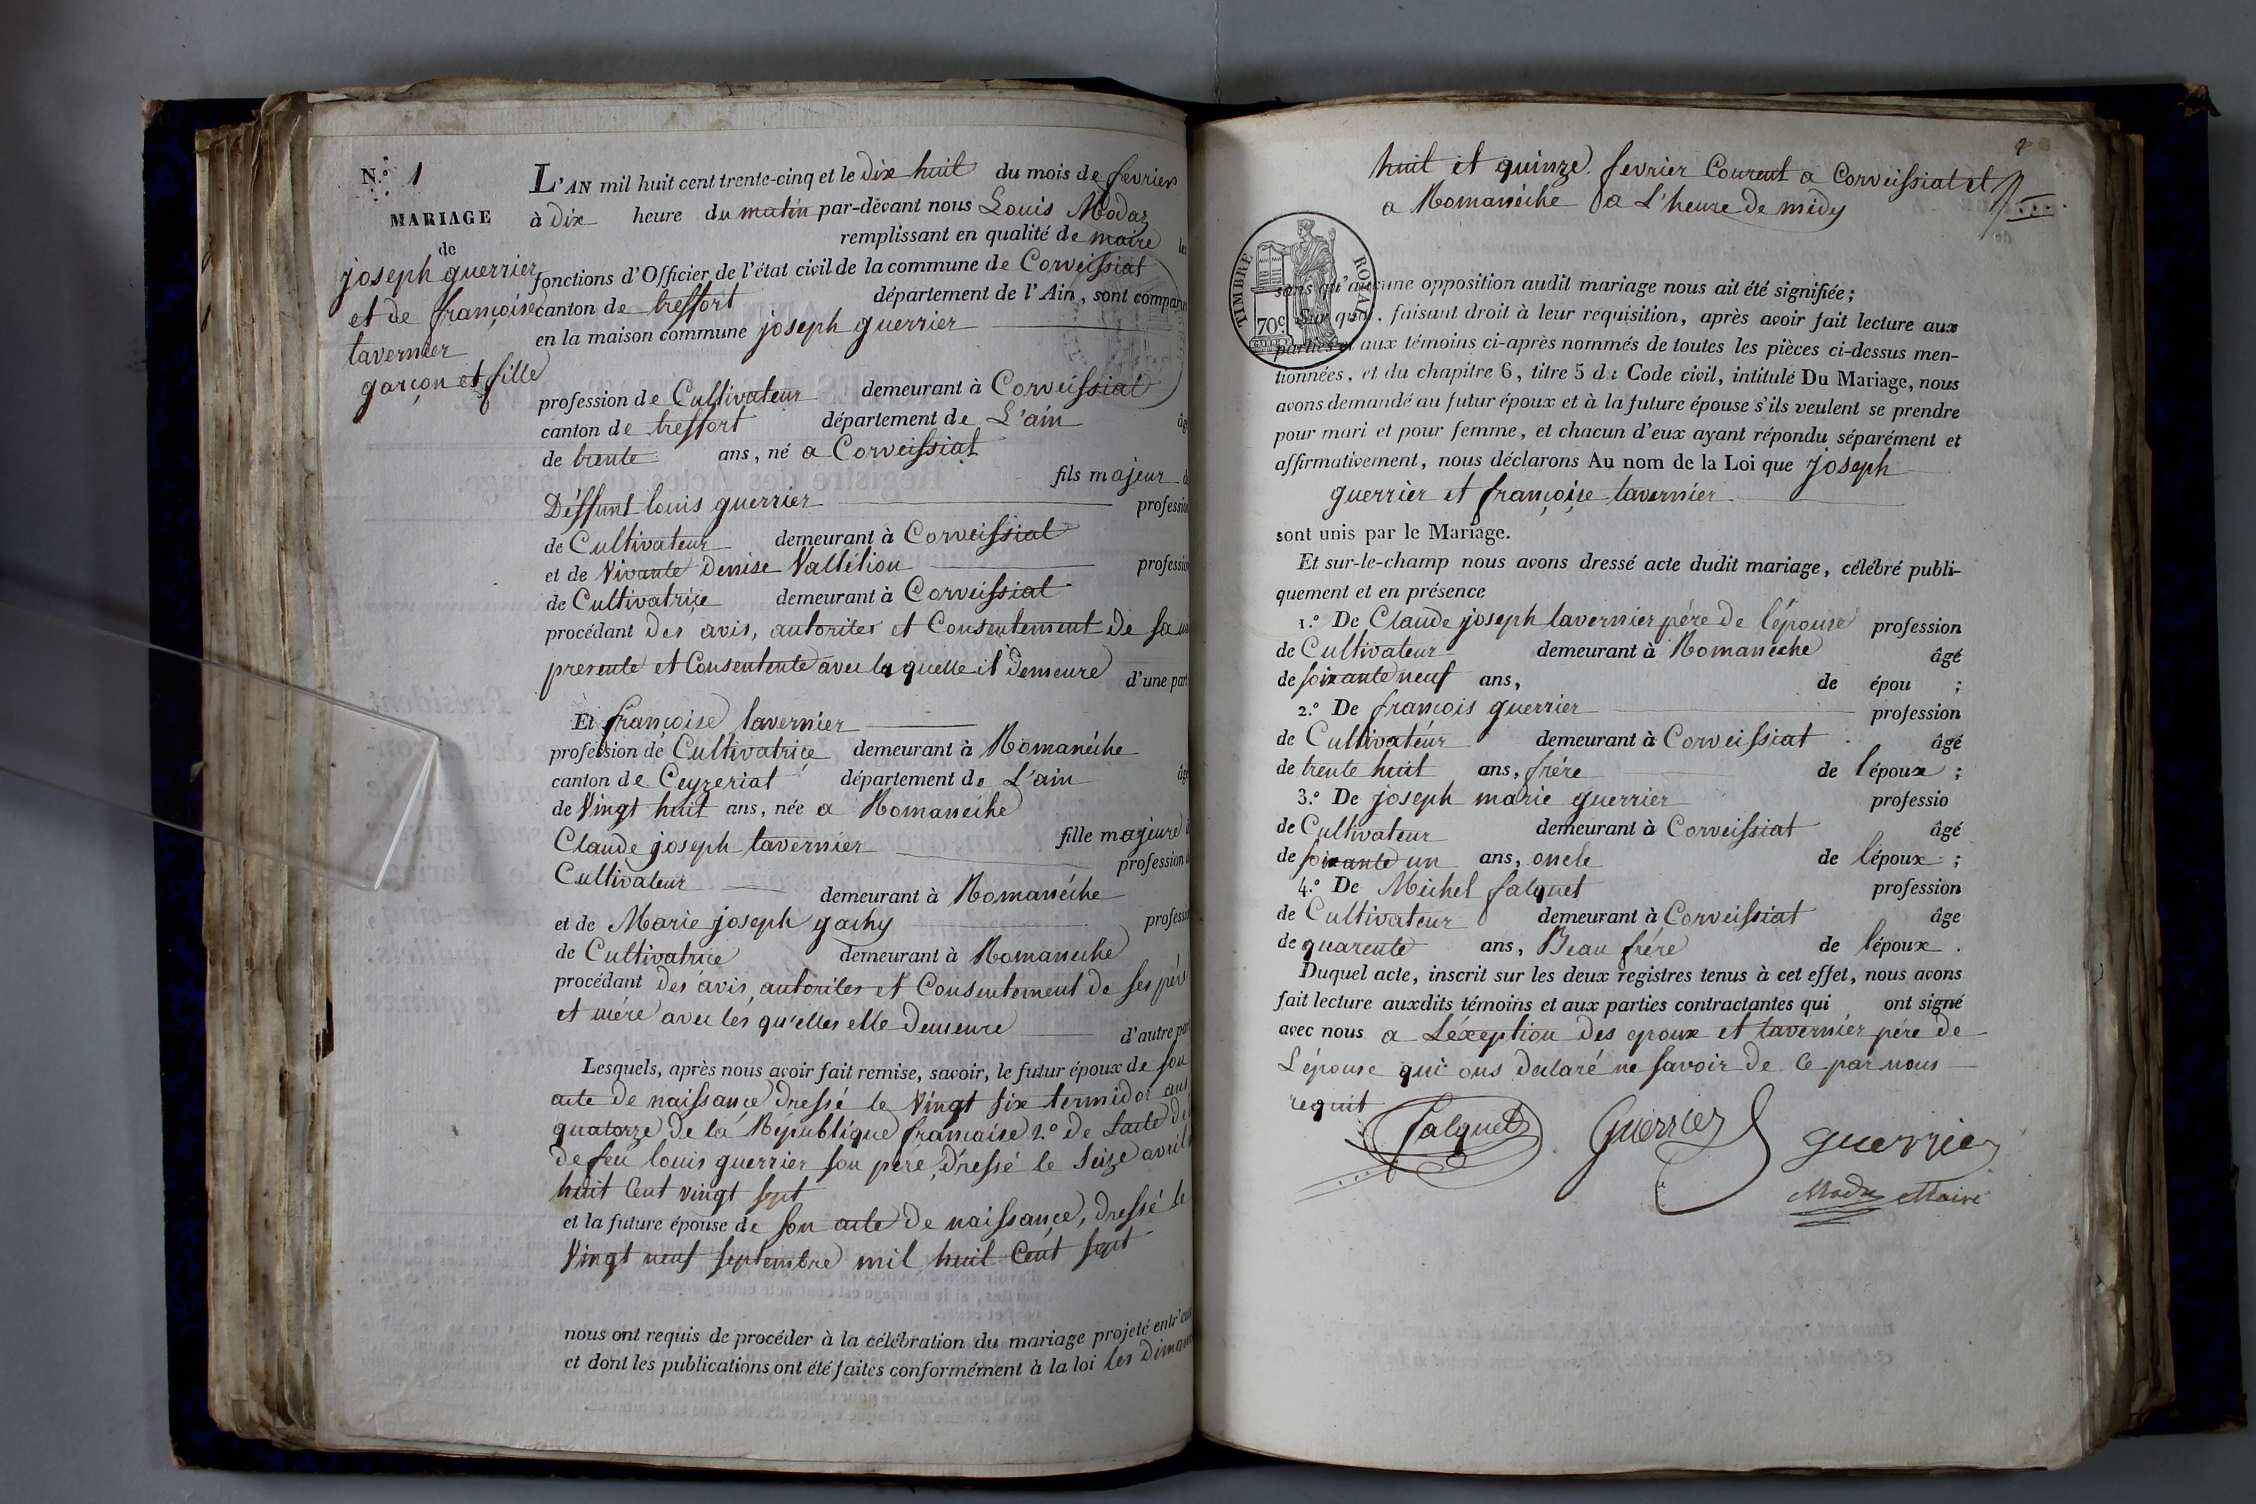 N.o 1
MARIAGE
de
joseph guerrier
et de françoise
tavernier
garçon et fille
L'AN mil huit cent trente-cinq et le dix huit du mois de fevrier
à dix heure du matin par-devant nous Louis Modaz
remplissant en qualité de maire les
fonctions d'Officier de l'état civil de la commune de Corveissiat
canton de treffort département de l'Ain, sont comparus
en la maison commune joseph guerrier
profession de Cultivateur demeurant à Corveissiat
canton de treffort département de L'ain âgé
de trente ans, né a Corveissiat
fils majeur de
Déffunt louis guerrier profession
de Cultivateur demeurant à Corveissiat
et de Vivante Denise Vallélion profession
de Cultivatriçe demeurant à Corveissiat
procédant des avis, autorites et Consentement de sa
presente et Consentente avec la quelle il Demeure d'une part
Et françoise tavernier
profession de Cultivatriçe demeurant à Romanéche
canton de Ceyzeriat département de L'ain âgé
de Vingt huit ans, née a Romanéche
fille majeure
Claude joseph tavernier profession
Cultivateur demeurant à Romanéche
et de Marie joseph gachy profession
de Cultivatrice demeurant à Romanéche
procédant des avis, autorites et Consentement de ses pér
et mére avec les qu'elles elle Demeure d'autre part
Lesquels, après nous avoir fait remise, savoir, le futur époux de son
acte de naissançe dressé le Vingt six termidor ans
quatorze de la République française 2.o de L'acte de
de feu louis guerrier son pére, dressé le Seize avril
huit Cent vingt sept
et la future épouse de son acte de naissançe, dressé le
Vingt neuf septembre mil huit Cent sept
nous ont requis de procéder à la célébration du mariage projeté entr'eux
et dont les publications ont été faites conformément à la loi les Diman
2
huit et quinze fevrier Courent a Corveissiat et
a Romanéche a L'heure de midy
TIMBRE ROYAL
70c
sans qu'aucune opposition audit mariage nous ait été signifiée;
Sur quoi, faisant droit à leur requisition, après avoir fait lecture aux
parties et aux témoins ci-après nommés de toutes les pièces ci-dessus men-
tionnées, et du chapitre 6, titre 5 du Code civil, intitulé Du Mariage, nous
avons demandé au futur époux et à la future épouse s'ils veulent se prendre
pour mari et pour femme, et chacun d'eux ayant répondu séparément et
affirmativement, nous déclarons Au nom de la Loi que joseph
guerrier et françoise tavernier
sont unis par le Mariage.
Et sur-le-champ nous avons dressé acte dudit mariage, célébré publi-
quement et en présence
1.o De Claude joseph tavernier pére de l'épouse profession
de Cultivateur demeurant à Romanéche âgé
de soixante neuf ans, de épou ;
2.o De francois guerrier profession
de Cultivateur demeurant à Corveissiat âgé
de trente huit ans, frére de l'époux ;
3.o De joseph marie guerrier professio
de Cultivateur demeurant à Corveissiat âgé
de soixante un ans, oncle de l'époux ;
4.o De Michel falquet profession
de Cultivateur demeurant à Corveissiat âge
de quarente ans, Beau frére de l'époux .
Duquel acte, inscrit sur les deux registres tenus à cet effet, nous avons
fait lecture auxdits témoins et aux parties contractantes qui ont signé
avec nous a L'éxeption des epoux et tavernier pére de
L'épouse qui ons declaré ne savoir de ce par nous
requit
falquet Guerrier guerrier
Modaz Maire